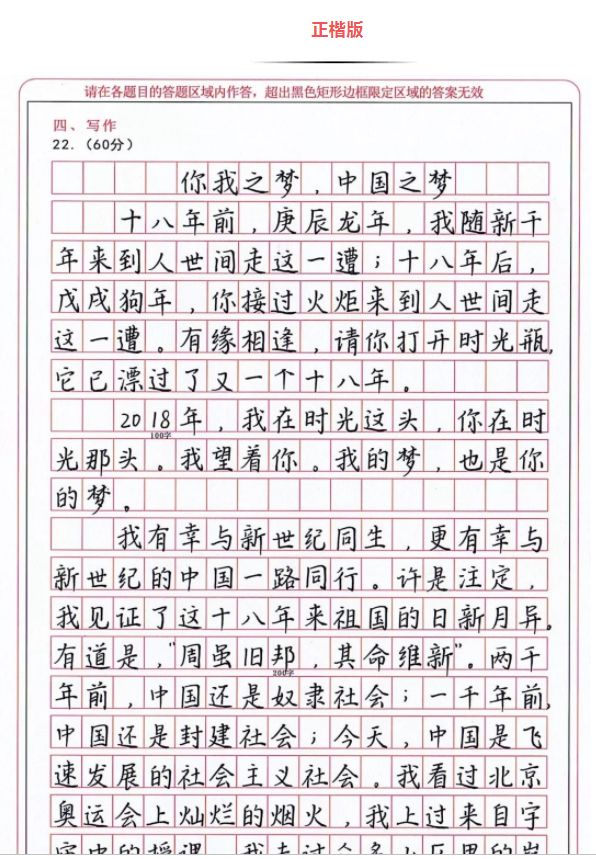 正楷版
请在各题目的答题区域内作答，超出黑色矩形边框限定区域的答案无效
四、写作
22.（60分）
你我之梦，中国之梦
十八年前，庚辰龙年，我随新千
年来到人世间走这一遭；十八年后，
戊戌狗年，你接过火炬来到人世间走
这一遭。有缘相逢，请你打开时光瓶，
它已漂过了又一个十八年。
2018年，我在时光这头，你在时
100字
光那头。我望着你。我的梦，也是你
的梦。
我有幸与新世纪同生，更有幸与
新世纪的中国一路同行。许是注定，
我见证了这十八年来祖国的日新月异。
有道是，"周虽旧邦，其命维新"。两千
200字
年前，中国还是奴隶社会；一千年前，
中国还是封建社会；今天，中国是飞
速发展的社会主义社会。我看过北京
奥运会上灿烂的烟火，我上过来自宇
宙中的授课，我走过